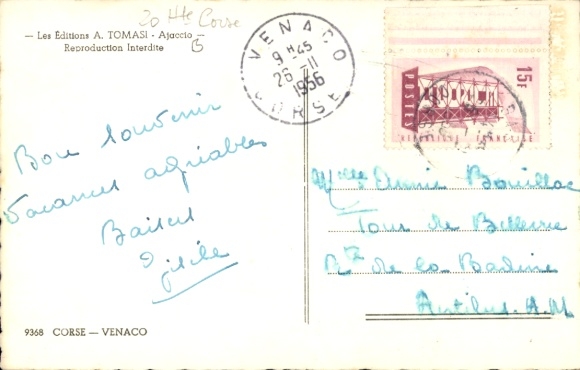 20 Hte Corse
— Les Éditions A. TOMASI - Ajaccio —
Reproduction Interdite
B
VENACO
9 H 45
26 - 11
1956
CORSE
15F
POSTES
REPUBLIQUE FRANÇAISE
Bon souvenir
Vacances agréables
Baisers
Gisèle
Mlle Annie Bouillac
Tour de Bellerive
Rte de la Badine
Antibes. A.M
9368 CORSE — VENACO